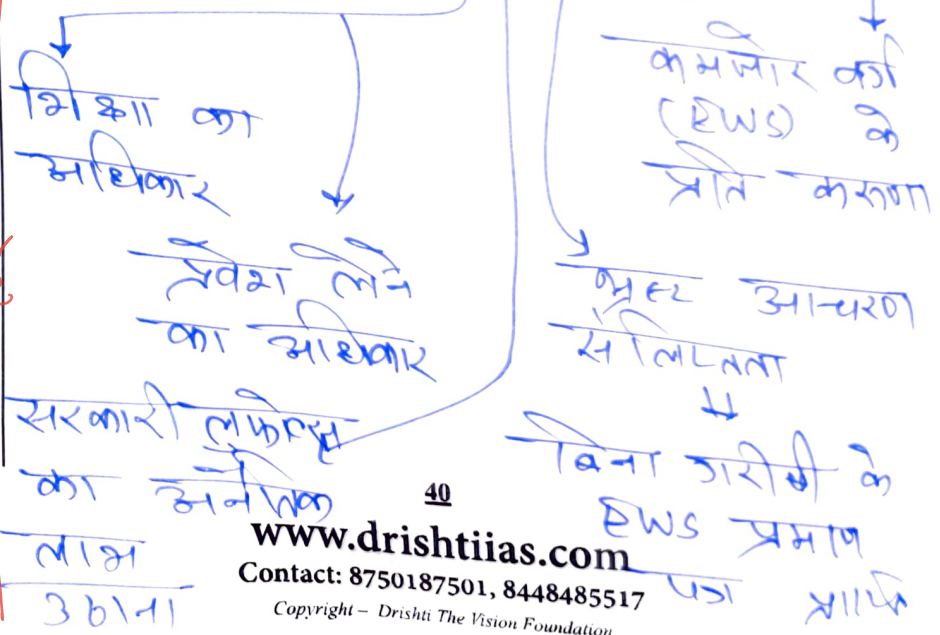 शिक्षा का
अधिकार
प्रवेश लेने
का अधिकार
सरकारी
का अनैतिक
लाभ
उठाना
कमजोर वर्ग
(EWS) के
प्रति करुणा
भ्रष्ट आचरण
संलिप्तता
बिना गरीबी के
EWS प्रमाण
पत्र प्राप्ति
40
www.drishtiias.com
Contact: 8750187501, 8448485517
Copyright – Drishti The Vision Foundation